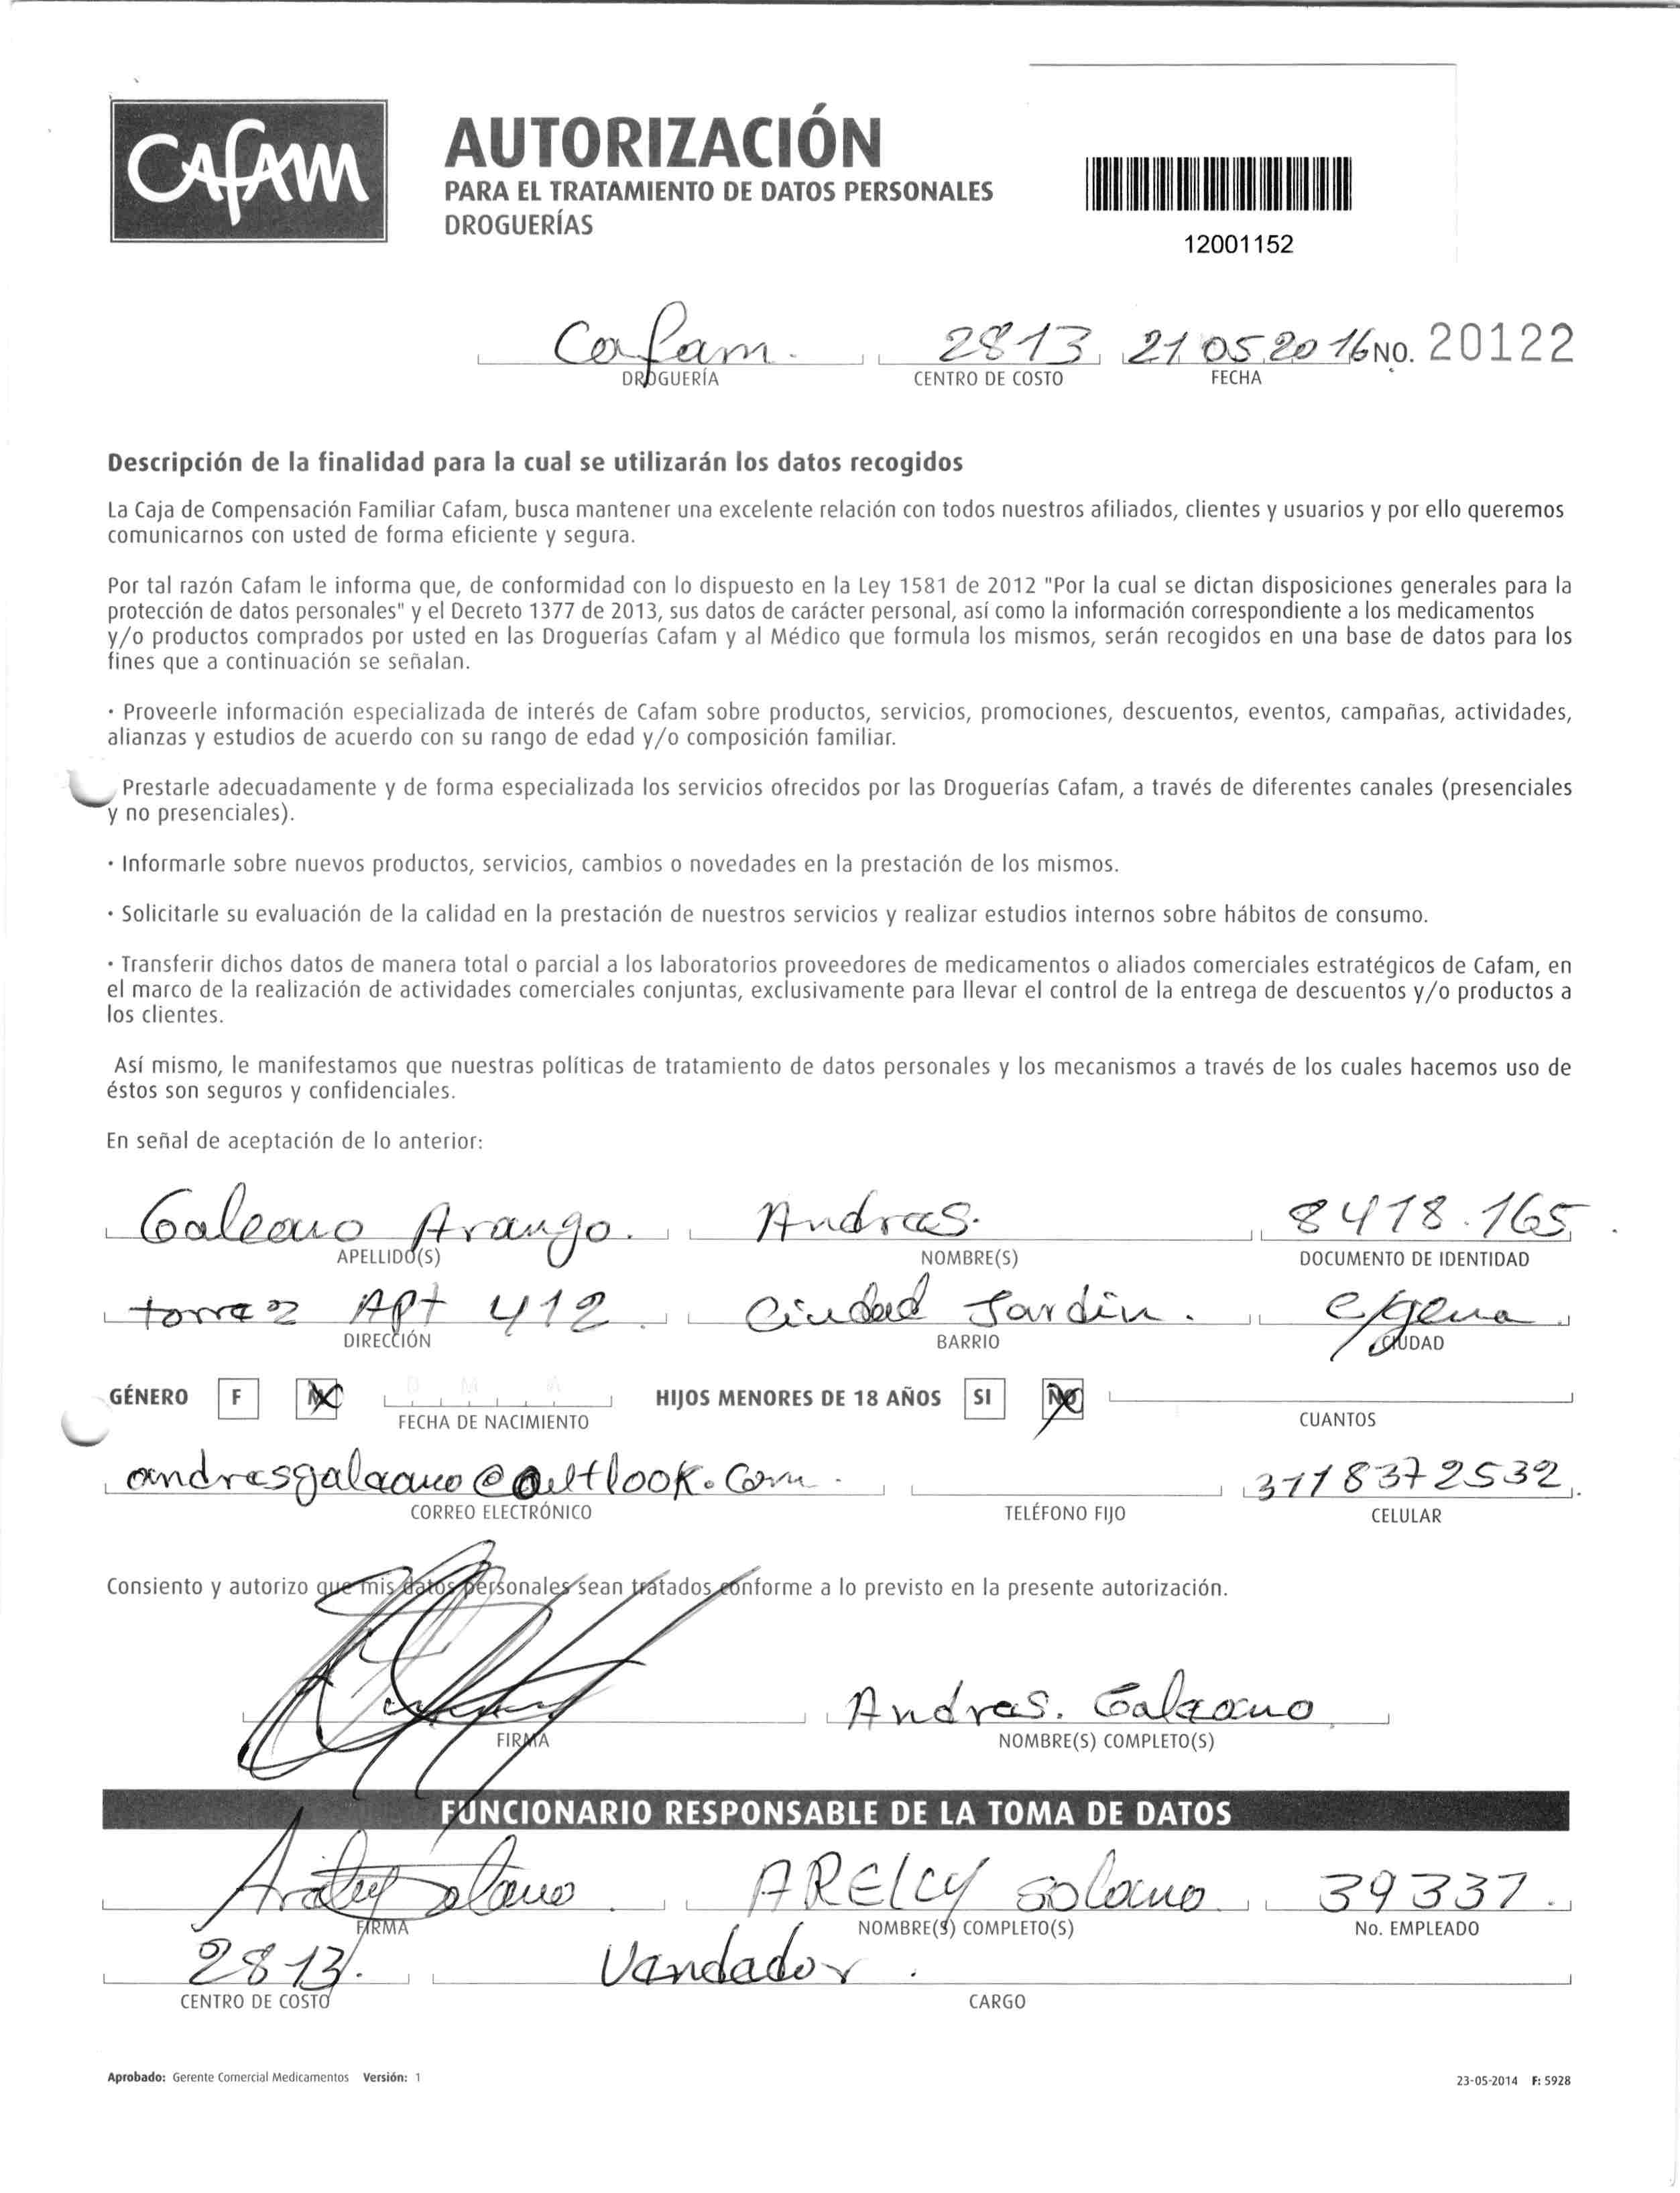 CAFAM
AUTORIZACIÓN
PARA EL TRATAMIENTO DE DATOS PERSONALES
DROGUERÍAS
12001152
Cafam. 2813 21 05 2016 NO. 20122
DROGUERÍA CENTRO DE COSTO FECHA
Descripción de la finalidad para la cual se utilizarán los datos recogidos
La Caja de Compensación Familiar Cafam, busca mantener una excelente relación con todos nuestros afiliados, clientes y usuarios y por ello queremos
comunicarnos con usted de forma eficiente y segura.
Por tal razón Cafam le informa que, de conformidad con lo dispuesto en la Ley 1581 de 2012 "Por la cual se dictan disposiciones generales para la
protección de datos personales" y el Decreto 1377 de 2013, sus datos de carácter personal, así como la información correspondiente a los medicamentos
y/o productos comprados por usted en las Droguerías Cafam y al Médico que formula los mismos, serán recogidos en una base de datos para los
fines que a continuación se señalan.
· Proveerle información especializada de interés de Cafam sobre productos, servicios, promociones, descuentos, eventos, campañas, actividades,
alianzas y estudios de acuerdo con su rango de edad y/o composición familiar.
Prestarle adecuadamente y de forma especializada los servicios ofrecidos por las Droguerías Cafam, a través de diferentes canales (presenciales
y no presenciales).
· Informarle sobre nuevos productos, servicios, cambios o novedades en la prestación de los mismos.
· Solicitarle su evaluación de la calidad en la prestación de nuestros servicios y realizar estudios internos sobre hábitos de consumo.
· Transferir dichos datos de manera total o parcial a los laboratorios proveedores de medicamentos o aliados comerciales estratégicos de Cafam, en
el marco de la realización de actividades comerciales conjuntas, exclusivamente para llevar el control de la entrega de descuentos y/o productos a
los clientes.
Así mismo, le manifestamos que nuestras políticas de tratamiento de datos personales y los mecanismos a través de los cuales hacemos uso de
éstos son seguros y confidenciales.
En señal de aceptación de lo anterior:
Galeano Arango. Andres. 8418.165
APELLIDO(S) NOMBRE(S) DOCUMENTO DE IDENTIDAD
torre 2 Apt 412 Ciudad Jardin. c/gena
DIRECCIÓN BARRIO CIUDAD
GÉNERO F M D M A HIJOS MENORES DE 18 AÑOS SI NO
FECHA DE NACIMIENTO CUANTOS
andresgaleano@outlook.com. 3118372532
CORREO ELECTRÓNICO TELÉFONO FIJO CELULAR
Consiento y autorizo que mis datos personales sean tratados conforme a lo previsto en la presente autorización.
Andres. Galeano
FIRMA NOMBRE(S) COMPLETO(S)
FUNCIONARIO RESPONSABLE DE LA TOMA DE DATOS
Arelcy Solano ARElcy Solano 39337.
FIRMA NOMBRE(S) COMPLETO(S) No. EMPLEADO
2813. Vendedor.
CENTRO DE COSTO CARGO
Aprobado: Gerente Comercial Medicamentos Versión: 1 23-05-2014 F: 5928